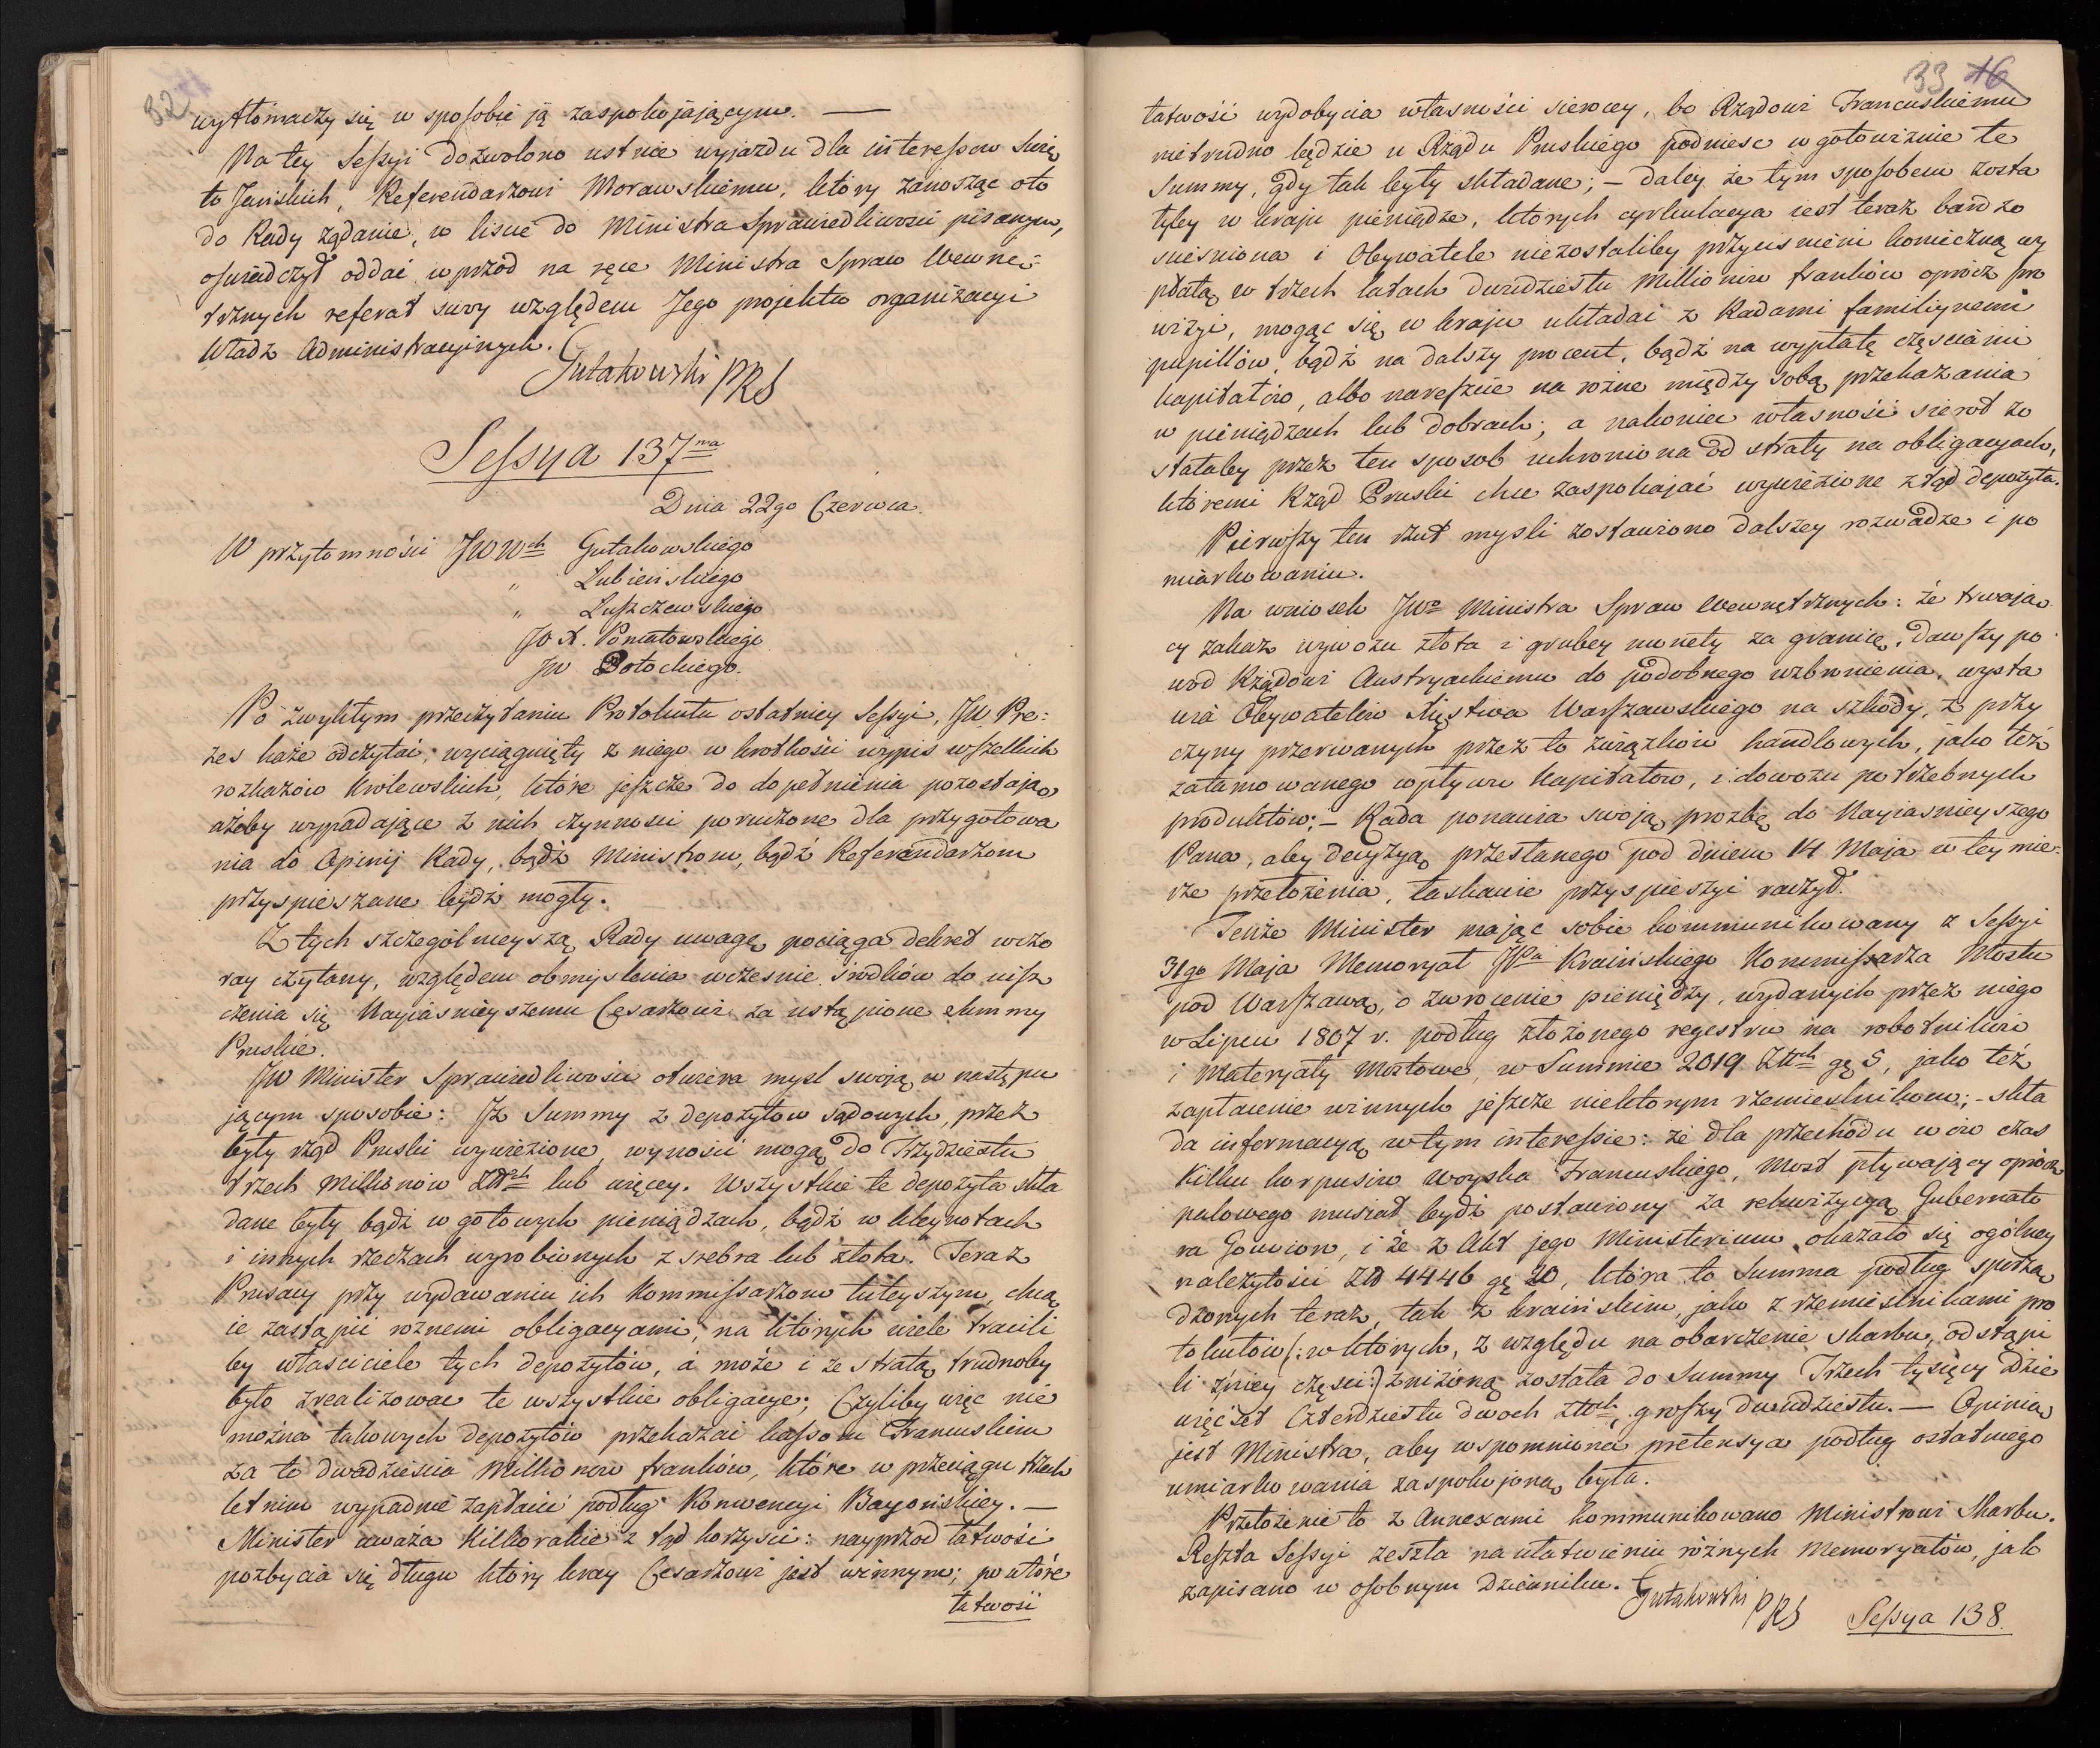 32
wytłomaczy się w sposobie ją zaspokajającym. —
Na tey Sessyi dozwolono ustnie wyjazdu dla interessow Swię
to Jańskich, Referendarzowi Morawskiemu, który zanosząc oto
do Rady żądanie, w liscie do Ministra Sprawiedliwosci pisanym,
oswiadczył oddać wprzód na ręce Ministra Spraw Wewnę=
trznych referat swoy względem Jego projektu organizacyi
Władz Administracyinych.
Gutakowski PRS
Sessya 137ma
Dnia 22go Czerwca.
W przytomności JWWch Gutakowskiego
" Łubieńskiego
" Łuszczewskiego
JO X. Poniatowskiego
JW Potockiego.
Po zwykłym przeczytaniu Protokułu ostatniey Sessyi, JW Pre=
zes każe odczytać, wyciągnięty z niego w krotkości wypis wszelkich
rozkazów Królewskich, które jeszcze do dopełnienia pozostają,
ażeby wypadające z nich czynnosci poruczone dla przygotowa
nia do Opinij Rady, bądź Ministrom, bądź Referendarzom
przyspieszane bydź mogły.
Z tych szczególnieyszą Rady uwagę pociąga dekret wczo
ray czytany, względem obmyslenia wczesnie srodków do uisz
czenia się Nayiasnieyszemu Cesarzowi za ustąpione Summy
Pruskie.
JW Minister Sprawiedliwosci otwiera mysl swoją w następu
jącym sposobie: Iż Summy z depozytow sądowych, przez
były rząd Pruski wywiezione, wynosić mogą do Trzydziestu
trzech Millionów Złłch lub więcey. Wszystkie te depozyta skła
dane były bądź w gotowych pieniądzach, bądź w kleynotach
i innych rzeczach wyrobionych z srebra lub złota. Teraz
Prusacy przy wydawaniu ich Kommissarzom tuteyszym, chcą
ie zastąpić roznemi obligacyami, na których wiele tracili
by właściciele tych depozytów, a może i ze stratą trudnoby
było zrealizowac te wszystkie obligacye; Czyliby więc nie
można takowych depozytów przekazać kassom Francuskim
za te dwadzieścia Millionow franków, które w przeciągu trzech
letnim wypadnie zapłacić podług Konwencyi Bayońskiey. —
Minister uważa kilkorakie z tąd korzysci: nayprzod łatwość
pozbycia się długu który kray Cesarzowi jest winnym; powtóre
łatwość
33 16
łatwość wydobycia własności sierocey, bo Rządowi Francuskiemu
nietrudno będzie u Rządu Pruskiego podniesc w gotowiznie te
Summy, gdy tak były składane; — daley że tym sposobem zosta
łyby w kraju pieniędze, których cyrkulacya iest teraz bardzo
sciesniona i Obywatele niezostaliby przycisnieni konieczną wy
płatą w trzech latach dwudziestu Millionów franków oprócz pro
wizyi, mogąc się w kraju układać z Radami familiynemi
pupillów, bądź na dalszy procent, bądź na wypłatę częsciami
kapitałów, albo nareszcie na rożne między sobą przekazania
w pieniądzach lub dobrach; a nakoniec własność sierot zo
stałaby przez ten sposob uchroniona od straty na obligacyach,
któremi Rząd Pruski chce zaspokajać wywiezione z tąd depozyta.
Pierwszy ten rzut mysli zostawiono dalszey rozwadze i po
miarkowaniu.
Na wniosek JWo Ministra Spraw Wewnętrznych: że trwają
cy zakaz wywozu złota i grubey monety za granicę, dawszy po
wod Rządowi Austryackiemu do podobnego wzbronienia, wysta
wia Obywatelów Xięstwa Warszawskiego na szkody, z przy
czyny przerwanych przez to związków handlowych, jako też
zatamowanego wpływu kapitałow, i dowozu potrzebnych
produktów; — Rada ponawia swoją prozbę do Nayiasnieyszego
Pana, aby decyzyą przesłanego pod dniem 14 Maja w tey mie=
rze przełożenia, łaskawie przyspieszyć raczył.
Tenże Minister mając sobie kommunikowany z Sessyi
31go Maja Memoryał JPa Kraińskiego Kommissarza Mostu
pod Warszawą, o zwrocenie pieniędzy, wydanych przez niego
w Lipcu 1807 r. podług złożonego regestru na robotników
i Materyały Mostowe, w Summie 2019 Złłch gę 5, jako też
zapłacenie winnych jeszcze niektorym rzemieslnikom; - skła
da informacyą w tym interessie: że dla przechodu w ów czas
Kilku korpusów Woyska Francuskiego, Most pływający oprócz
palowego musiał bydź postawiony za rekwizycyą Gubernato
ra Gouvion, i że z Akt jego Ministerium okazało się ogólney
należytości Złł 4446 gę 20, która to Summa podług sporzą
dzonych teraz, tak z kraińskim, jako z rzemieslnikami pro
tokułów (: w których, z względu na obarczenie skarbu, odstąpi
li zniey częsci:) zniżoną została do Summy Trzech tysięcy Dzie
więćset Czterdziestu dwoch Złłch, groszy dwudziestu. — Opinią
jest Ministra, aby wspomniona pretensya podług ostatniego
umiarkowania zaspokojoną była.
Przełożenie to z Annexami kommunikowano Ministrowi Skarbu.
Reszta Sessyi zeszła na ułatwieniu różnych Memoryałów, jak
zapisano w osobnym Dzienniku.
Gutakowski PRS
Sessya 138.